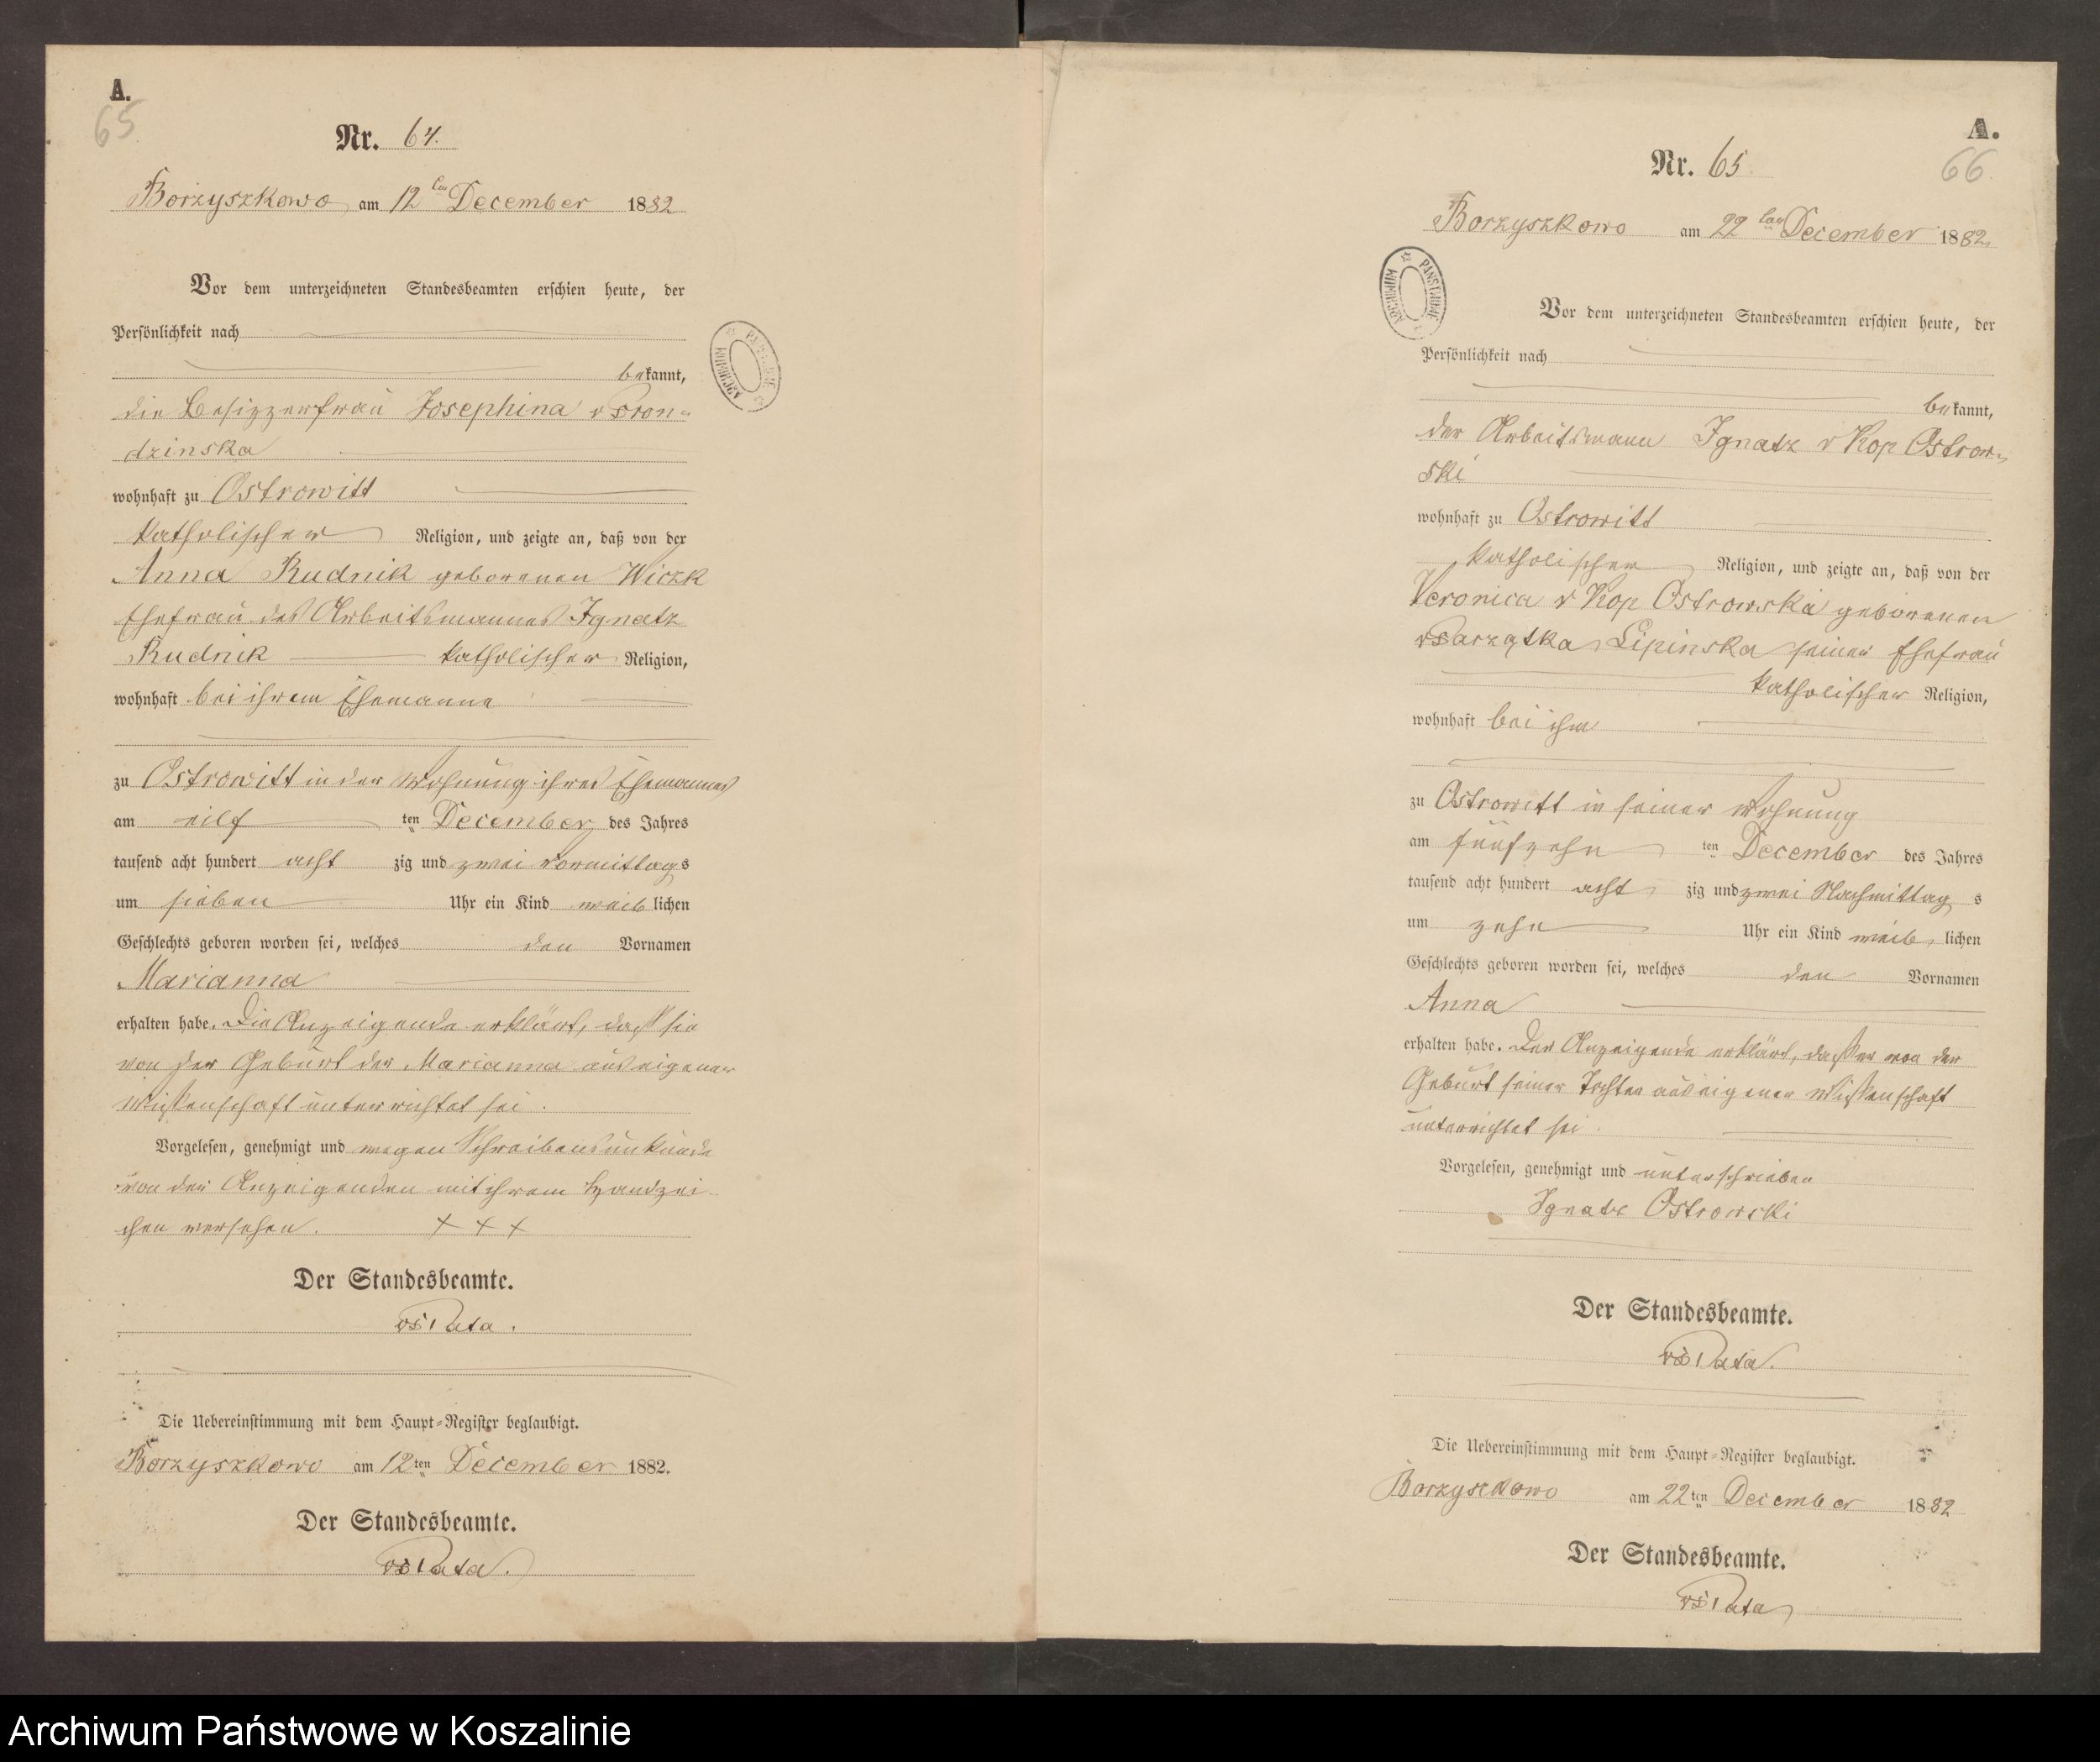 A.
65
Nr. 64.
Borzyszkowo am 12ten December 1882
Vor dem unterzeichneten Standesbeamten erschien heute, der
Persönlichkeit nach
bekannt,
die Besitzerfrau Josephina v
dzinska
wohnhaft zu Ostrowitt
katholischer Religion, und zeigte an, daß von der
Anna Rudnik geborenen Wiczk
Ehefrau des Arbeitsmannes Ignatz
Rudnik katholischer Religion,
wohnhaft bei ihrem Ehemanne
zu Ostrowitt in der Wohnung ihres Ehemannes
am eilf ten December des Jahres
tausend acht hundert acht zig und zwei Vormittags
um sieben Uhr ein Kind weiblichen
Geschlechts geboren worden sei, welches den Vornamen
Marianna
erhalten habe. Die Anzeigende erklärt, daß sie
von der Geburt der Marianna aus eigener
Wißenschaft unterrichtet sei.
Vorgelesen, genehmigt und wegen Schreibensunkunde
von der Anzeigenden mit ihrem Handzei-
chen versehen. + + +
Der Standesbeamte.
Die Uebereinstimmung mit dem Haupt-Register beglaubigt.
Borzyszkowo am 12ten December 1882.
Der Standesbeamte.
A.
66
Nr. 65.
Borzyszkowo am 22ten December 1882.
ARCHIWUM PAŃSTWOWE
Vor dem unterzeichneten Standesbeamten erschien heute, der
Persönlichkeit nach
bekannt,
der Arbeitsmann Ignatz v Kop Ostrow-
ski
wohnhaft zu Ostrowitt
katholischer Religion, und zeigte an, daß von der
Veronica v Kop Ostrowska geborenen
Lipinska seiner Ehefrau
katholischer Religion,
wohnhaft bei ihm
zu Ostrowitt in seiner Wohnung
am fünfzehn ten December des Jahres
tausend acht hundert acht zig und zwei Nachmittag s
um zehn Uhr ein Kind weib lichen
Geschlechts geboren worden sei, welches den Vornamen
Anna
erhalten habe. Der Anzeigende erklärt, daß er von der
Geburt seiner Tochter aus eigener Wißenschaft
unterrichtet sei.
Vorgelesen, genehmigt und unterschrieben
Ignatz Ostrowski
Der Standesbeamte.
Die Uebereinstimmung mit dem Haupt-Register beglaubigt.
Borzyszkowo am 22ten December 1882
Der Standesbeamte.
Archiwum Państwowe w Koszalinie